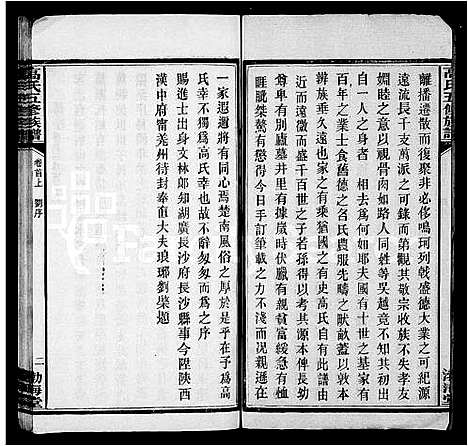 離播遷散而復聚非必侈鳴珂列戟盛德大業之可紀源
遠流長千支萬派之可錄而第觀其敦宗族不失孝友
婣睦之意以視骨肉如路人同姓等吳越竟不問其初出
自一人之身者　相去爲何如耶夫國有十世之基家有
百年之業士食舊德之名氏農服先疇之畎畝蓋以敦本
辨族垂久遠也家之有乘猶國之有史高氏自此譜由
近而遠徵而盛千百世之子若孫得以考其源本俾長幼
尊卑有別廬墓井里有據歲時伏臘有親貧富緩急有恃
睚毗桀驁有懲則今日手訂筆載之力不淺而況親遜在
一家迢邐將有同心焉楚南風俗之厚於是乎在予爲高
氏幸不獨爲高氏幸也故不辭匆匆而爲之序
賜進士出身文林郎知湖廣長沙府長沙縣事今陞陝西
漢中府甯羌州待封奉直大夫琅琊劉榘題
高氏五修族譜
卷首上　劉序
二
渤海堂